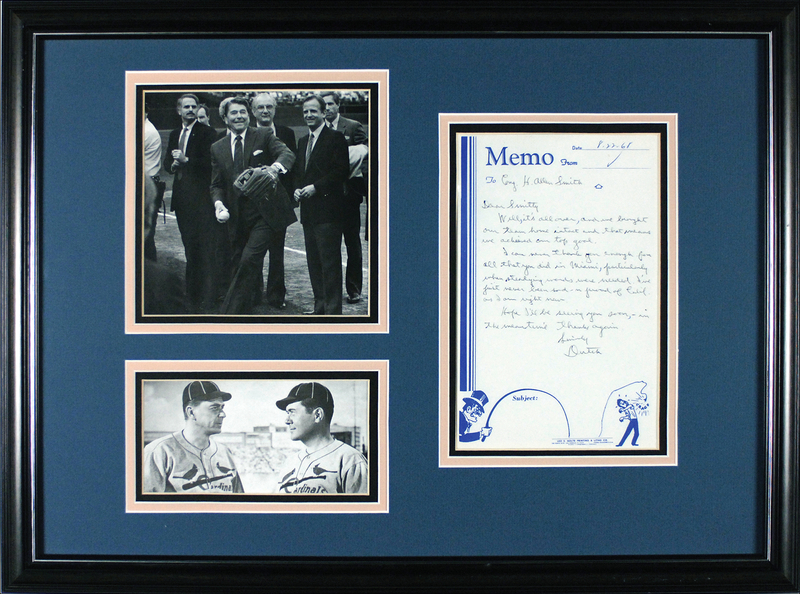 Memo
Date 8-22-68
From
To Cong. H. Allen Smith
Dear Smitty
Well, it's all over, and we brought
our team home intact and that means
we achieved our top goal.
I can never thank you enough for
all that you did in Miami, particularly
when steadying words were needed. I've
just never been so d--n proud of Calif.
as I am right now.
Hope We'll be seeing you soon, - in
the meantime Thanks again
Sincerely
Dutch
Subject:
Cardina
Cardinals